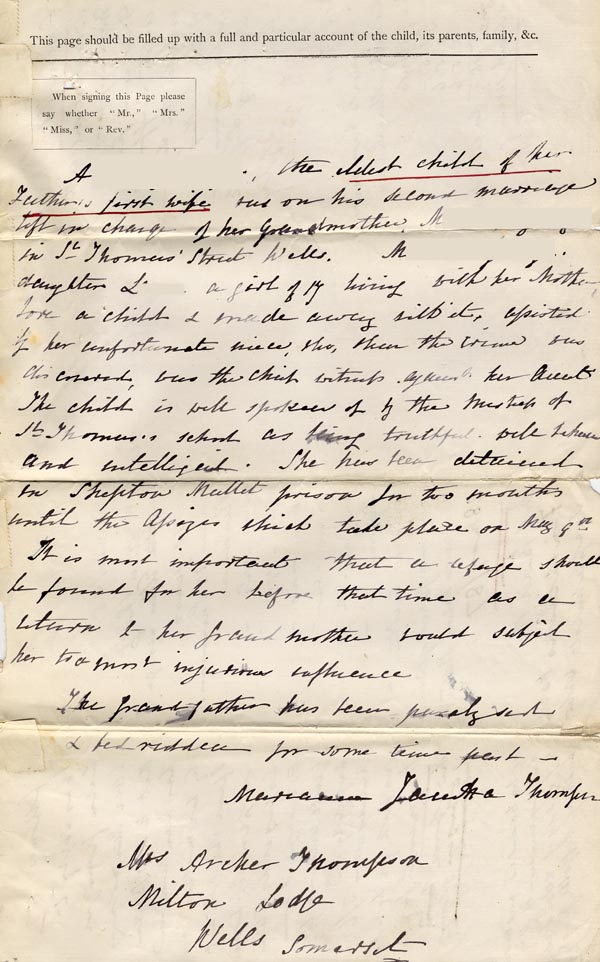 This page should be filled up with a full and particular account of the child, its parents, family, &c.
When signing this Page please
say whether "Mr.," "Mrs."
"Miss," or "Rev."
A , the eldest child of her
Father's first wife was on his second marriage
left in charge of her Grandmother. M
in St Thomas' Street Wells. M
daughter L a girl of 17 living with her Mother
bore a child & made away with it, assisted
by her unfortunate niece, who, when the crime was
discovered, was the chief witness against her Aunt.
The child is well spoken of by the Mistress of
St Thomas's school as being truthful well behaved
and intelligent. She has been detained
in Shepton Mallet prison for two months
until the Assizes which take place on May 9th
It is most important that a refuge should
be found for her before that time as a
return to her grandmother would subject
her to a most injurious influence
The grandfather has been paralysed
& bedridden for some time past –
Thompson
Mrs Archer Thompson
Milton Lodge
Wells Somerset